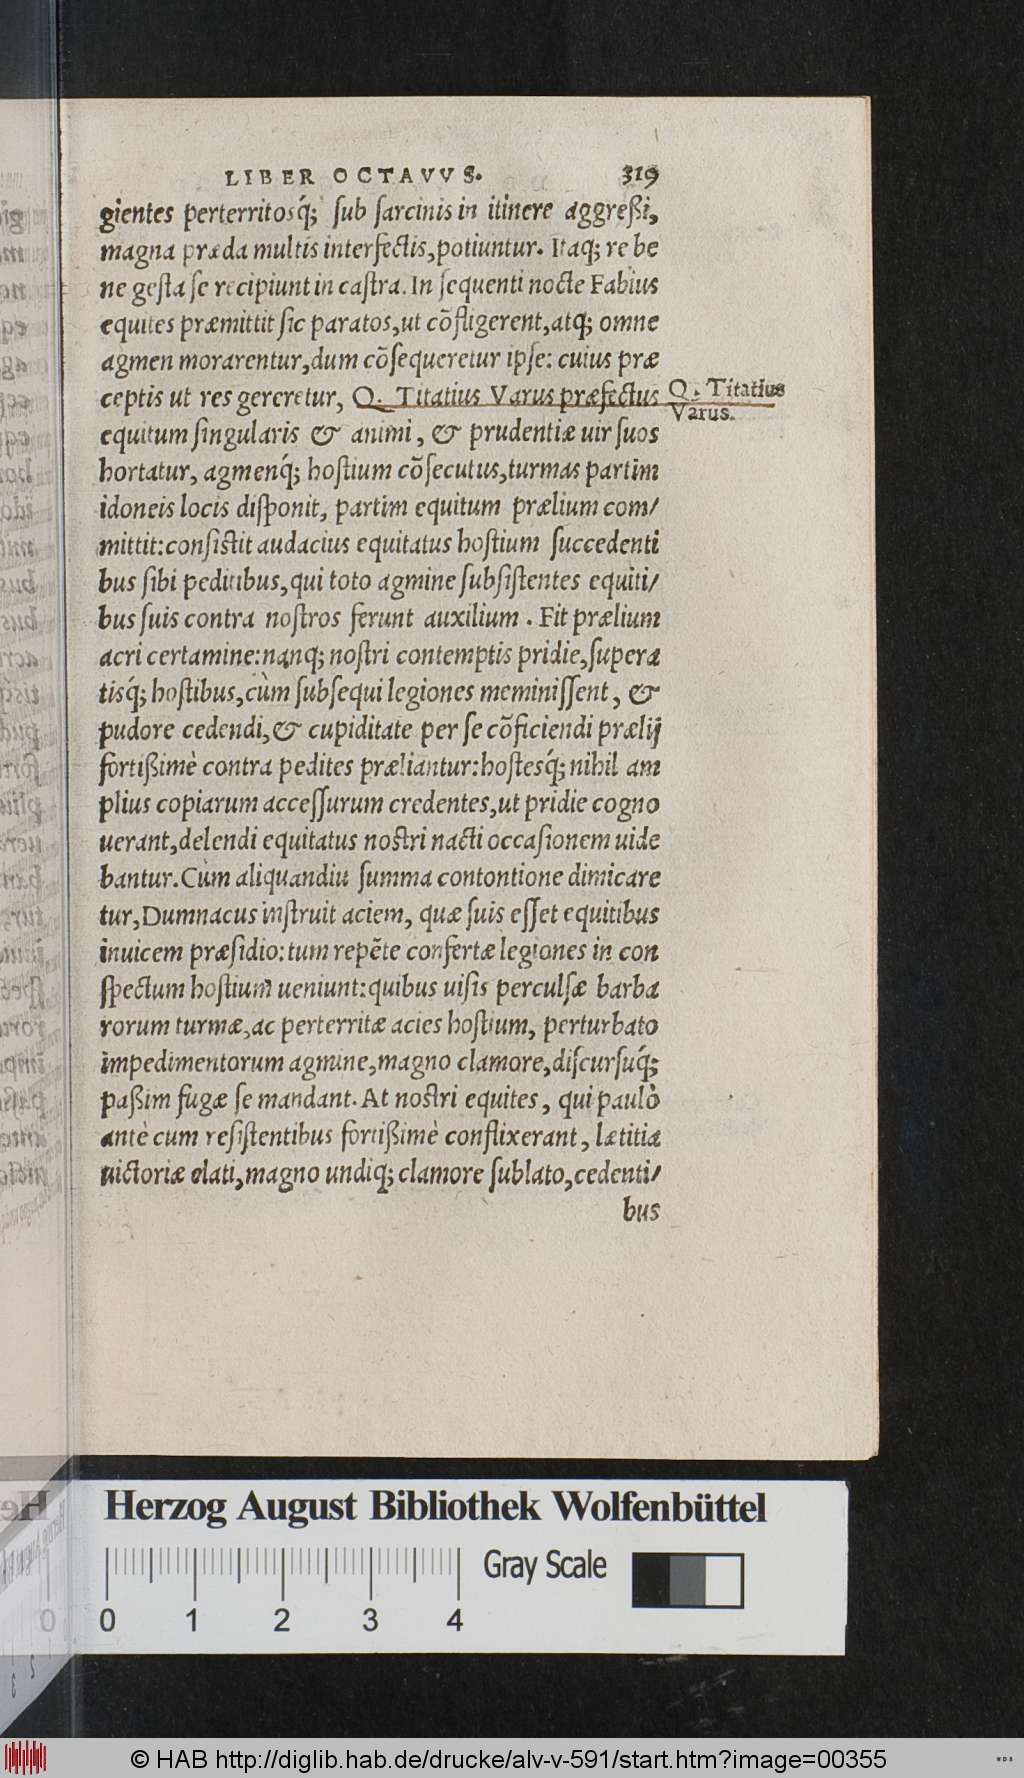 LIBER OCTAVVS. 319
gientes perterritosq́; ſub ſarcinis in itinere aggreßi,
magna præda multis interfectis,potiuntur. Itaq; re be
ne geſta ſe recipiunt in caſtra. In ſequenti nocte Fabius
equites præmittit ſic paratos,ut cõfligerent,atq; omne
agmen morarentur,dum cõſequeretur ipſe: cuius præ
ceptis ut res gereretur, Q. Titatius Varus præfectus
Q. Titatius
Varus.
equitum ſingularis & animi, & prudentiæ uir ſuos
hortatur, agmenq́; hoſtium cõſecutus,turmas partim
idoneis locis diſponit, partim equitum prælium com/
mittit:conſiſtit audacius equitatus hoſtium ſuccedenti
bus ſibi peditibus,qui toto agmine ſubſiſtentes equiti/
bus ſuis contra noſtros ferunt auxilium. Fit prælium
acri certamine:nanq; noſtri contemptis pridie,ſupera
tisq́; hoſtibus,cùm ſubſequi legiones meminiſſent, &
pudore cedendi,& cupiditate per ſe cõficiendi prælij
fortißimè contra pedites præliantur:hoſtesq́; nihil am
plius copiarum acceſſurum credentes,ut pridie cogno
uerant,delendi equitatus noſtri nacti occaſionem uide
bantur.Cùm aliquandiu ſumma contontione dimicare
tur,Dumnacus inſtruit aciem, quæ ſuis eſſet equitibus
inuicem præſidio:tum repẽte confertæ legiones in con
ſpectum hoſtium ueniunt:quibus uiſis perculſæ barba
rorum turmæ,ac perterritæ acies hoſtium, perturbato
impedimentorum agmine,magno clamore,diſcurſuq́;
paßim fugæ ſe mandant. At noſtri equites, qui paulò
antè cum reſiſtentibus fortißimè conflixerant, lætitia
uictoriæ elati,magno undiq; clamore ſublato,cedenti/
bus
Herzog August Bibliothek Wolfenbüttel
Gray Scale
0 1 2 3 4
© HAB http://diglib.hab.de/drucke/alv-v-591/start.htm?image=00355